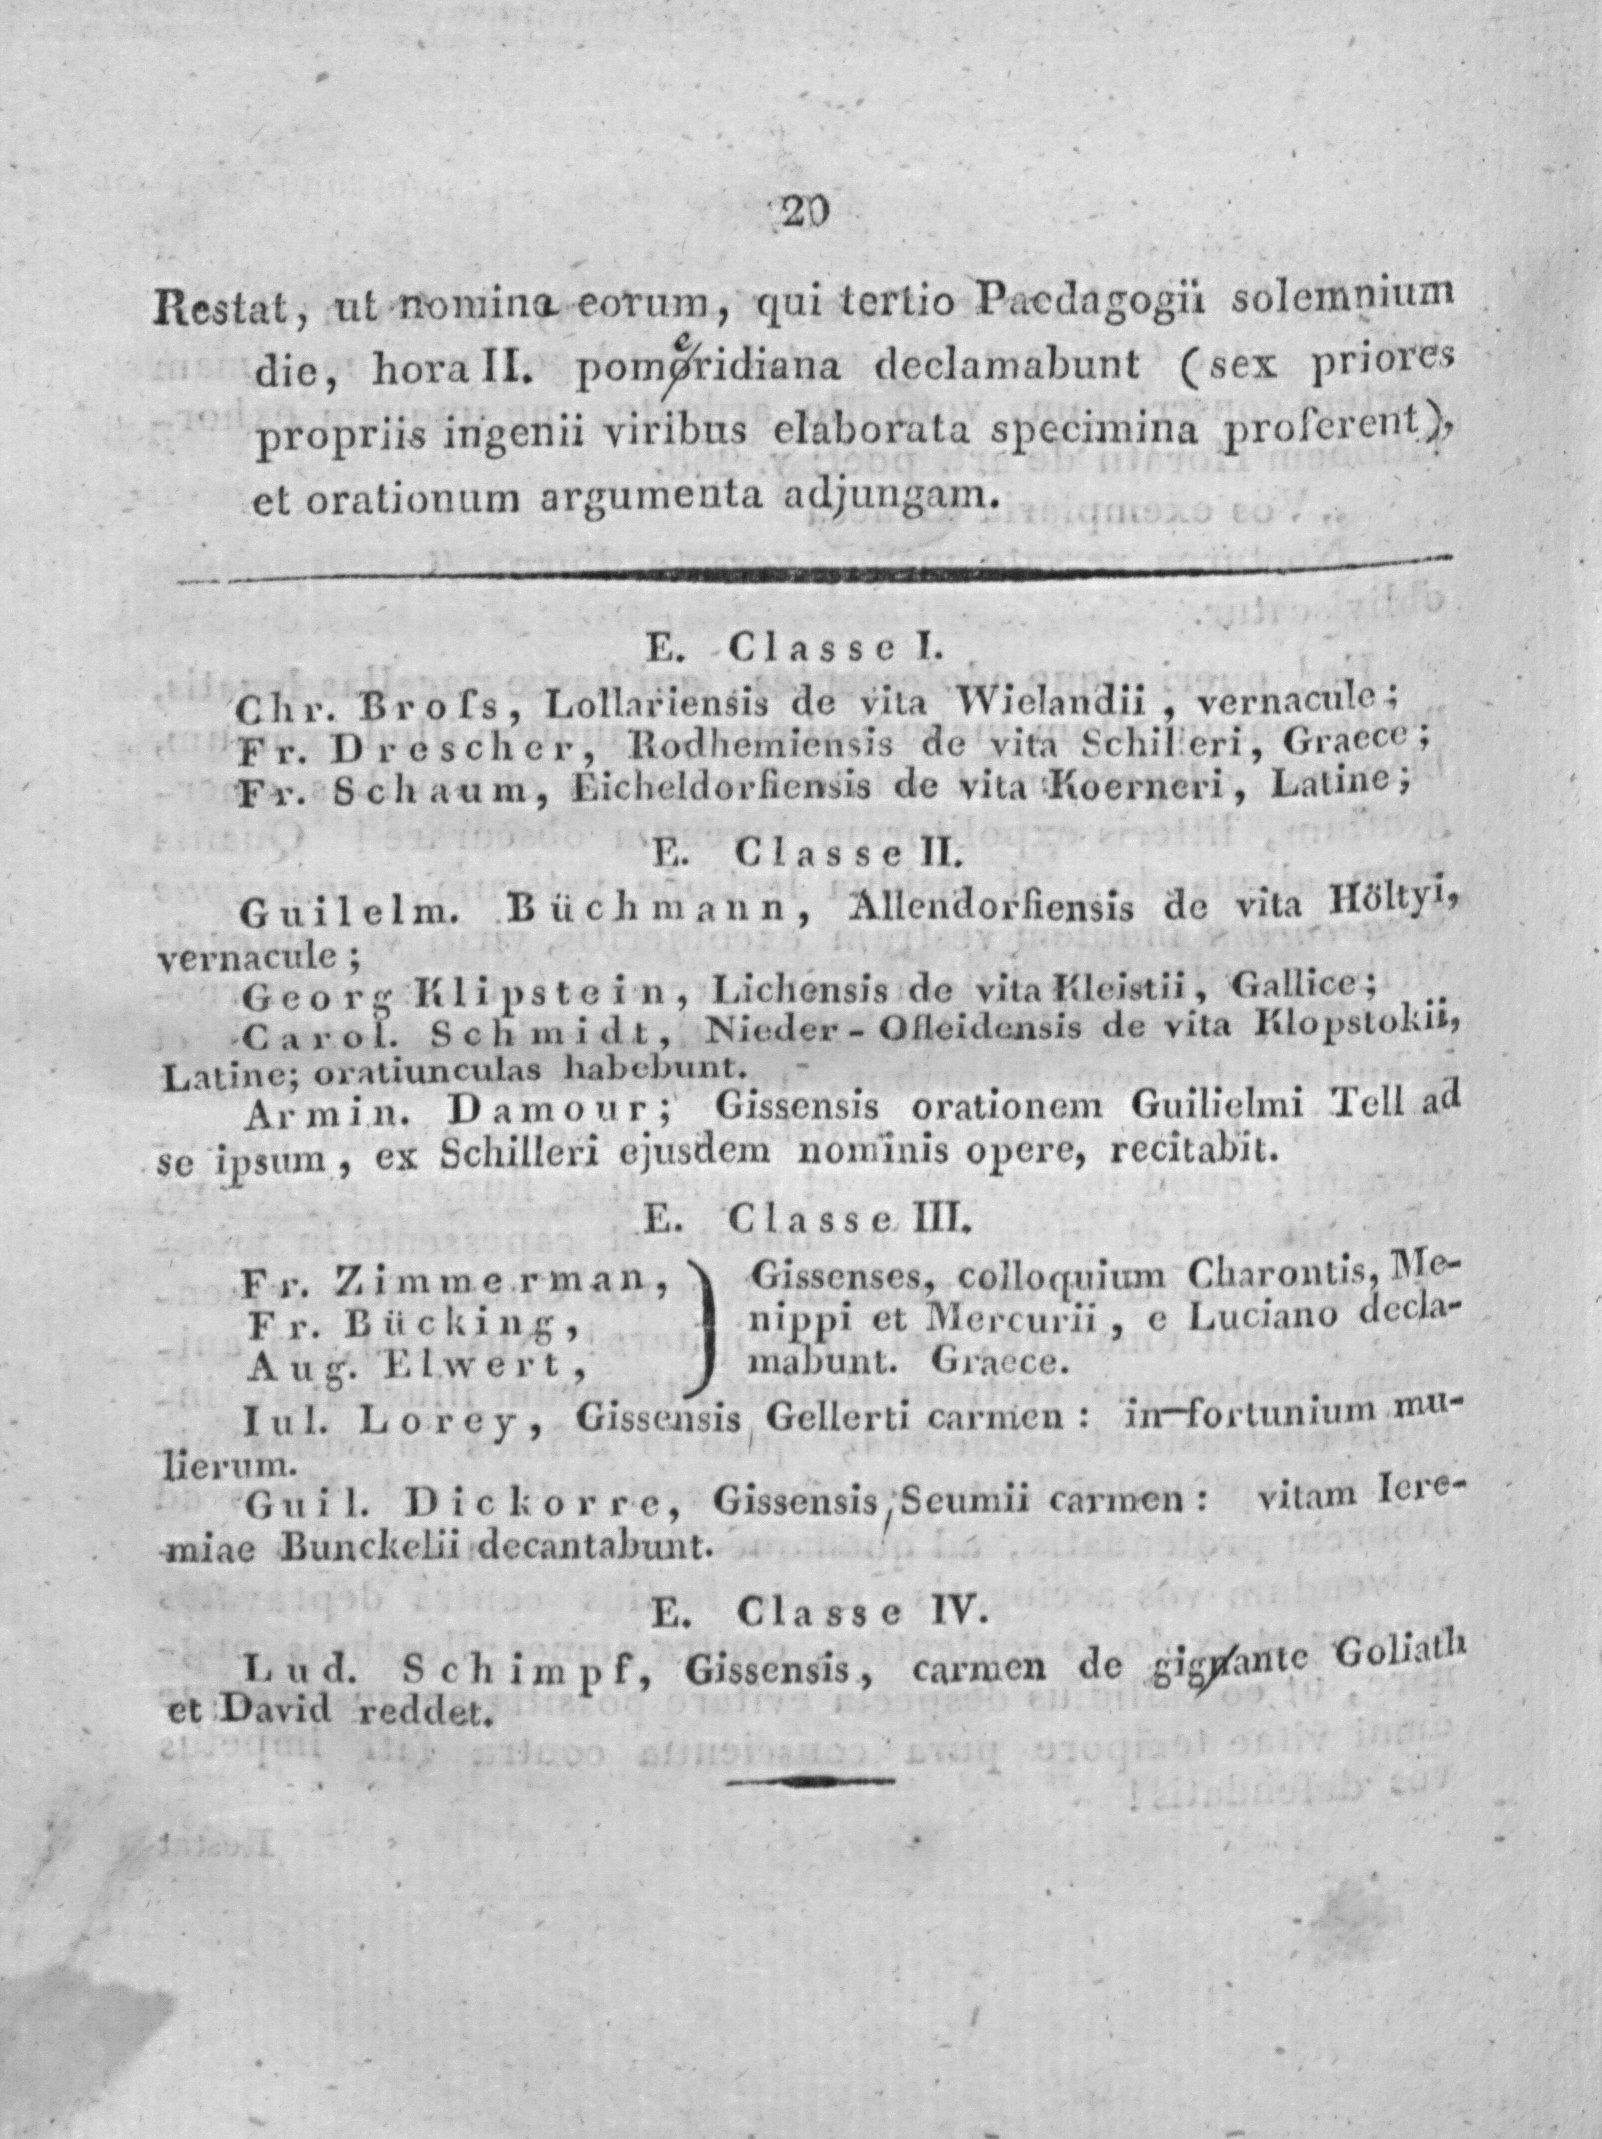 20
Restat, ut nomina eorum, qui tertio Paedagogii solemnium
die, hora II. pomeridiana declamabunt (sex priores
propriis ingenii viribus elaborata specimina proferent),
et orationum argumenta adjungam.
E. Classe I.
Chr. Broſs, Lollariensis de vita Wielandii, vernacule;
Fr. Drescher, Rodhemiensis de vita Schilleri, Graece;
Fr. Schaum, Eicheldorfiensis de vita Koerneri, Latine;
E. Classe II.
Guilelm. Büchmann, Allendorfiensis de vita Höltyi,
vernacule;
Georg Klipstein, Lichensis de vita Kleistii, Gallice;
Carol. Schmidt, Nieder-Ofleidensis de vita Klopstokii,
Latine; oratiunculas habebunt.
Armin. Damour; Gissensis orationem Guilielmi Tell ad
se ipsum, ex Schilleri ejusdem nominis opere, recitabit.
E. Classe III.
Fr. Zimmerman, } Gissenses, colloquium Charontis, Me-
Fr. Bücking, nippi et Mercurii, e Luciano decla-
Aug. Elwert, mabunt. Graece.
Iul. Lorey, Gissensis, Gellerti carmen: in-fortunium mu-
lierum.
Guil. Dickorre, Gissensis, Seumii carmen: vitam Iere-
miae Bunckelii decantabunt.
E. Classe IV.
Lud. Schimpf, Gissensis, carmen de gigante Goliath
et David reddet.